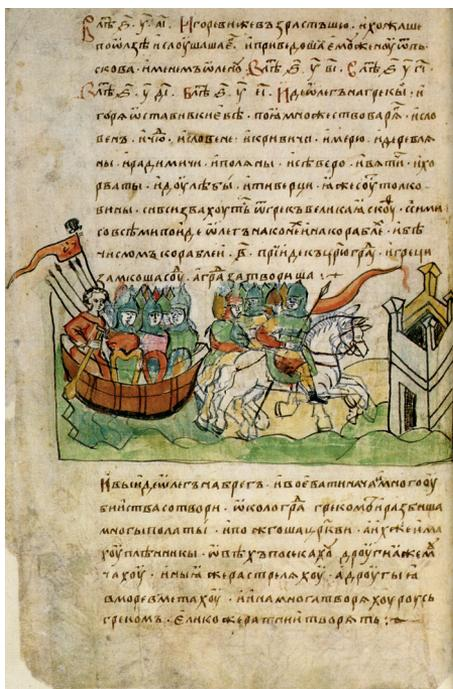 В лѣⷮ ҂ѕ҃ у҃ аі҃ · Игоревижевъзрастъшю · ихожаше
пооⷧзѣ и слоушашаеⷢ · и приведоша ему женоу ѿпь
скова · именемъ ѡленоу В лѣⷮ ҂ѕ҃ у҃ ві҃ · В лѣⷮ ҂ѕ҃ у҃ гі҃ ·
В лѣⷮ ҂ѕ҃ у҃ ді҃ · В лѣⷮ ҂ѕ҃ у҃ еі҃ · Иде ѡлегъ на грекы · и
горѧ ѡстави въ киевѣ · поꙗ множество варѧⷢ · и сло
венъ · и чюⷣ · и словене · и кривичи · и мерю · и деревлѧ
ны · и радимичи · и полѧны · и сѣверо · и вѧтиⷱ · и хо
рваты · и доулѣбы · и тиверци · ꙗже соуⷮ толко
вины · си вси звахоутьⷭ ѿ грекъ великаꙗ скоуⷴ · сь сими
со всѣми поиде ѡлегъ на конеⷯ и на кораблеⷯ · и бѣ
числомъ кораблеи · ҂в҃ · приидекъ црⷭюградоу · и греци
замкоша соуⷣ · а граⷣ затвориша :·
И выиде ѡлегъ на брегъ · и воевати начаⷮ и много оу
бииства сотвори · ѡколо граⷣ грекомъ и разбиша
многы полаты · и пожгоша црⷪкви · а ихже има
хоу плѣнникы · ѡвѣхъ посекахоу дроугиꙗ же мⷱу
чахоу · иныꙗ же растрелѧхоу · а дроугыꙗ
в море вметахоу · и ина многа творѧхоу роусь
грекомъ · елико же ратнии творѧть :·